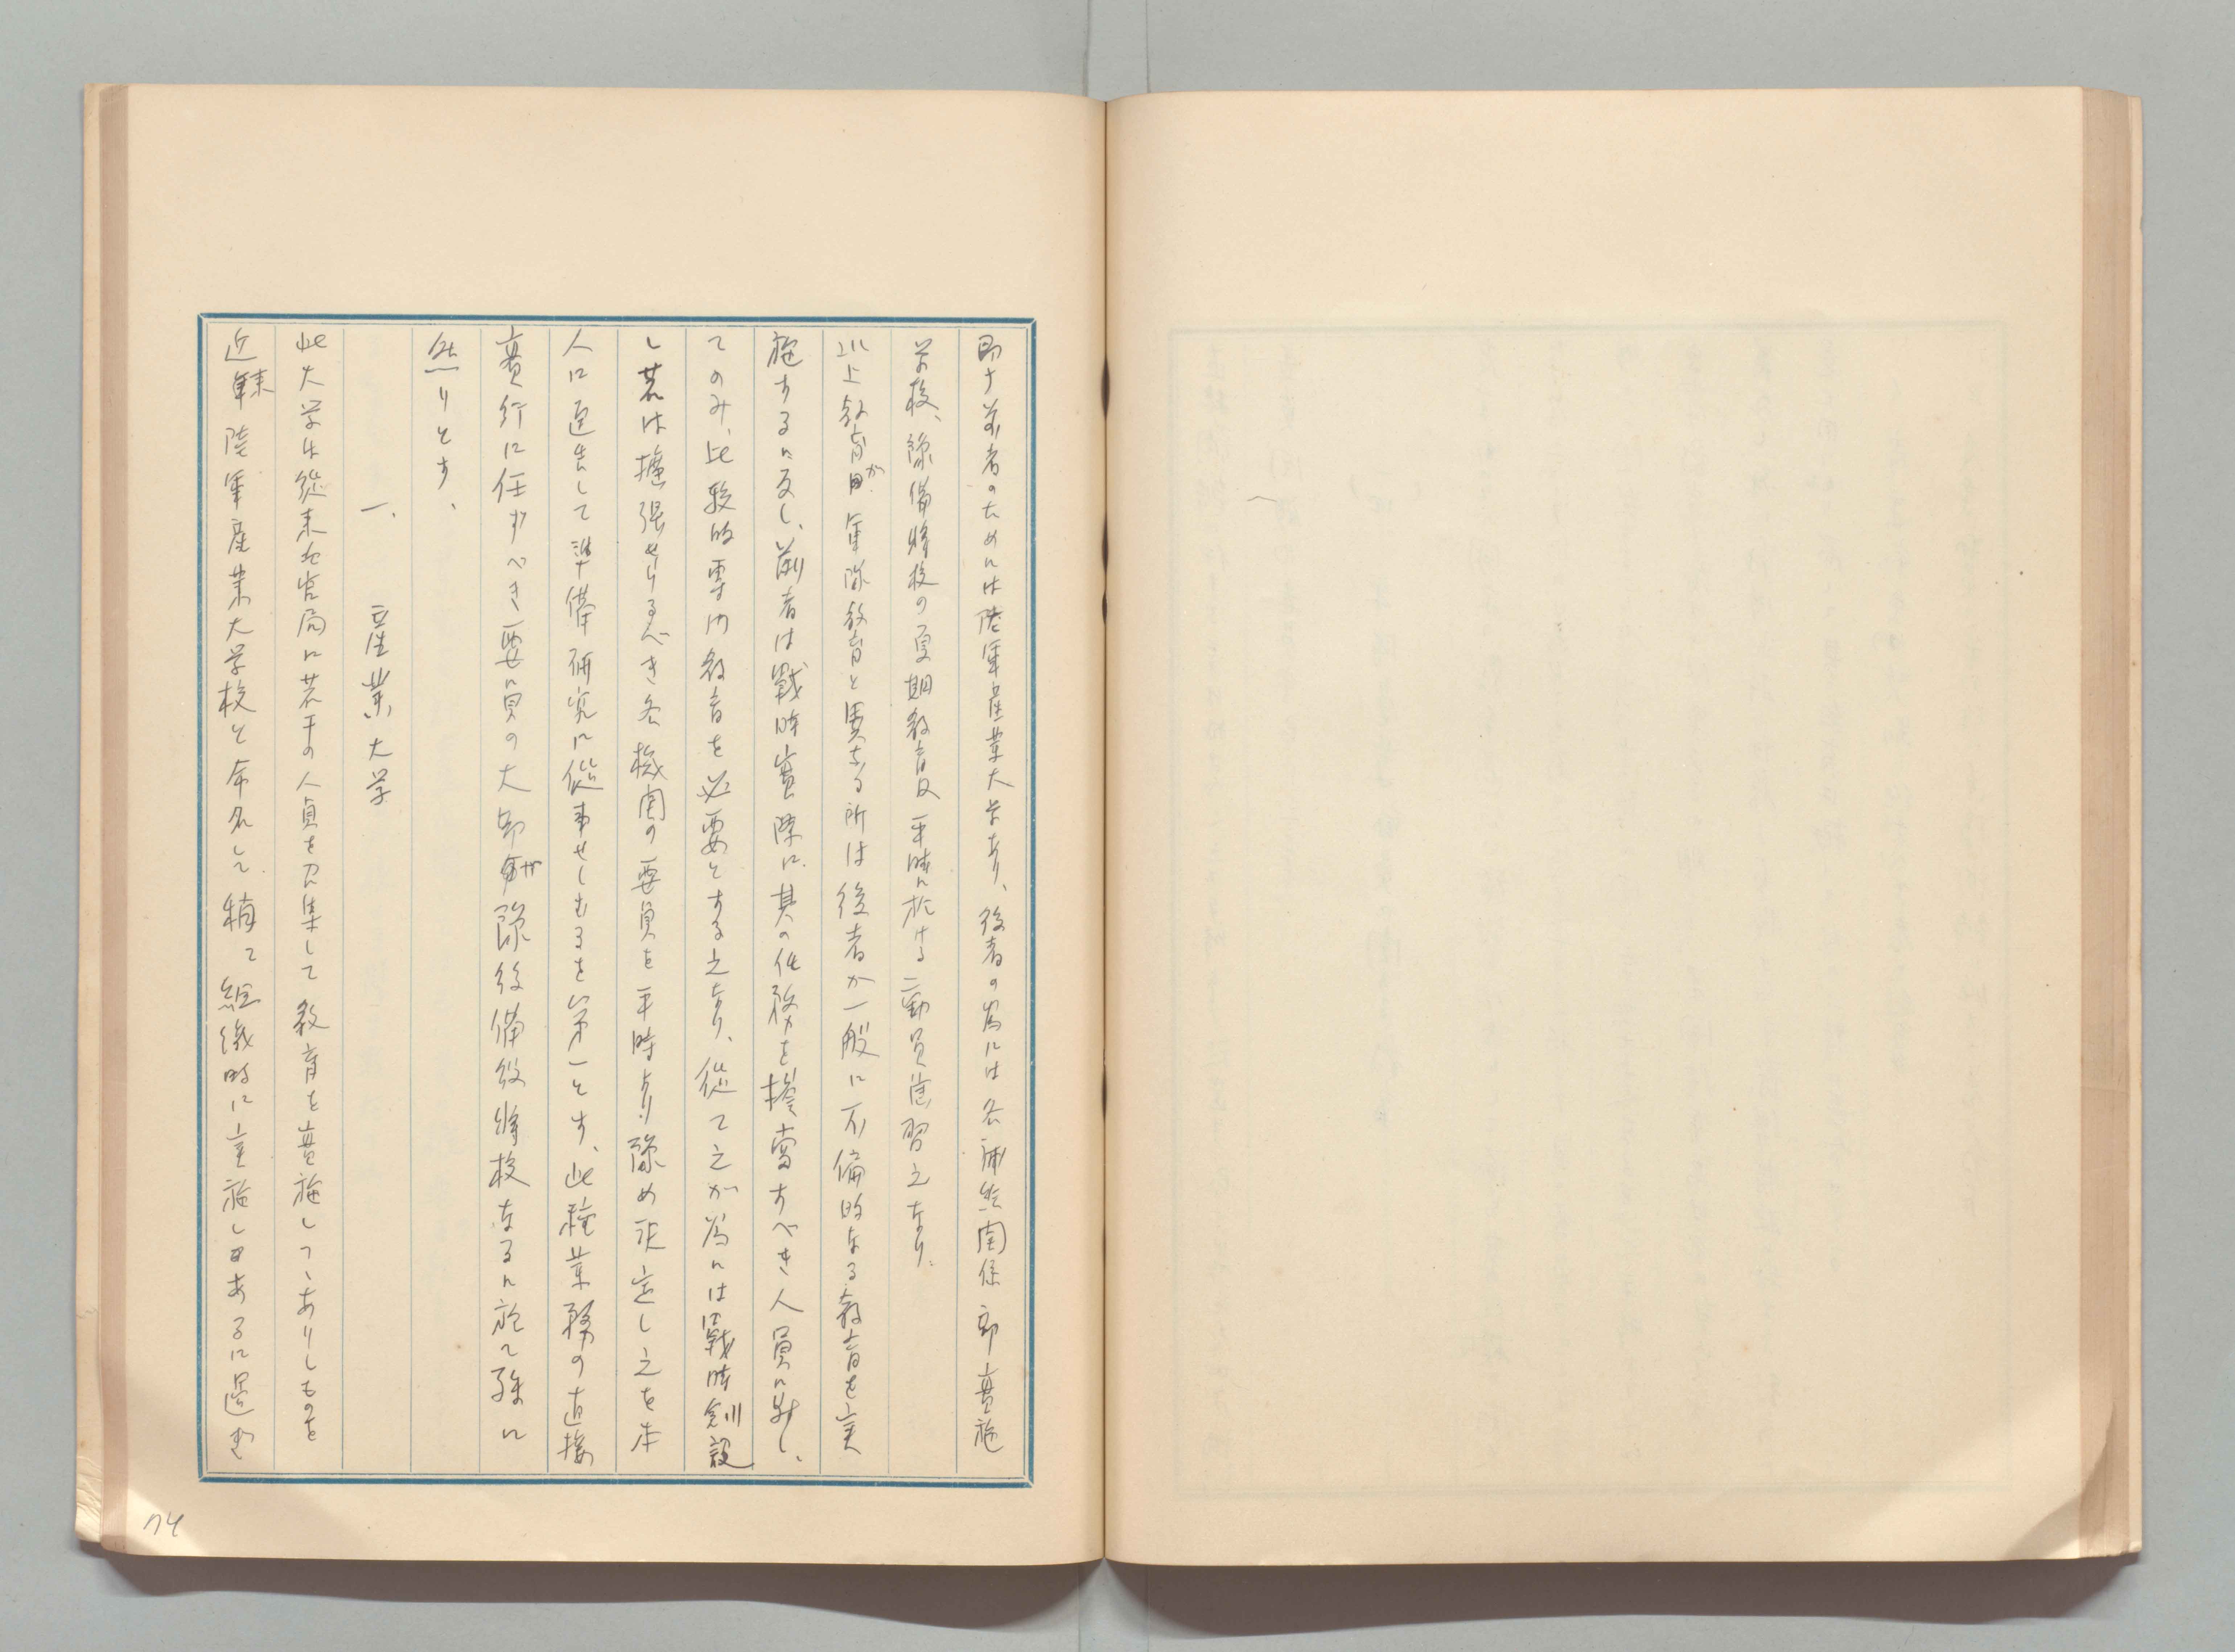 即ち前者のためには陸軍産業大学あり、後者の為には各補給関係部實施
学校、豫備将校の夏期教育及平時に於ける動員演習之なり。
以上教育が軍隊教育と異なる所は後者が一般に不偏的なる教育を実
施するに反し、前者は戰時實際に其の任務を擔當すべき人員に對し、
てのみ、比較的専門教育を必要とする之なり、從て之が為には戰時創設
し若は擴張せらるべき各機関の要員を平時より豫め決定し之を本
人に通告して準備研究に從事せしむるを第一とす、此種業務の直接
實行に任ずべき要員の大部が豫後備役将校なるに於て殊に
然りとす、
一、産業大学
此大学は從来各官局に若干の人員を召集して教育を實施しつゝありしものを
近来陸軍産業大学校と命名して稍て組織的に実施しあるに過ぎ
74